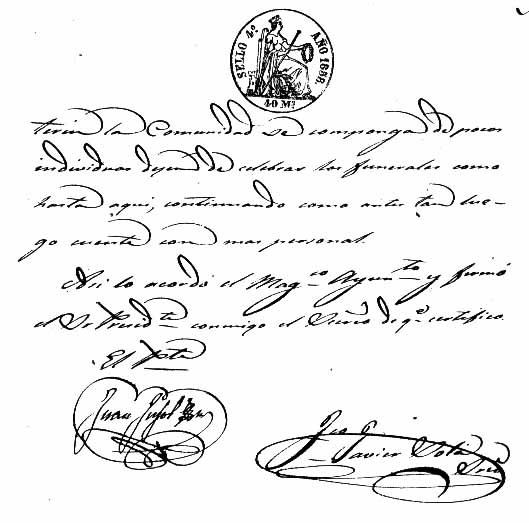 SELLO 4º AÑO 1858
40 Ms
la Comunidad se componga de pocos
individuos dejen de celebrar los funerales como
hasta aqui, continuando como antes tan lue-
go cuente con mas personal.
Asi lo acordó el Mag.co Ayun.to y firmó
el Sr Presid.te conmigo el Srio de q.e certifico.
El Pte
Juan Pujol
Javier
Srio